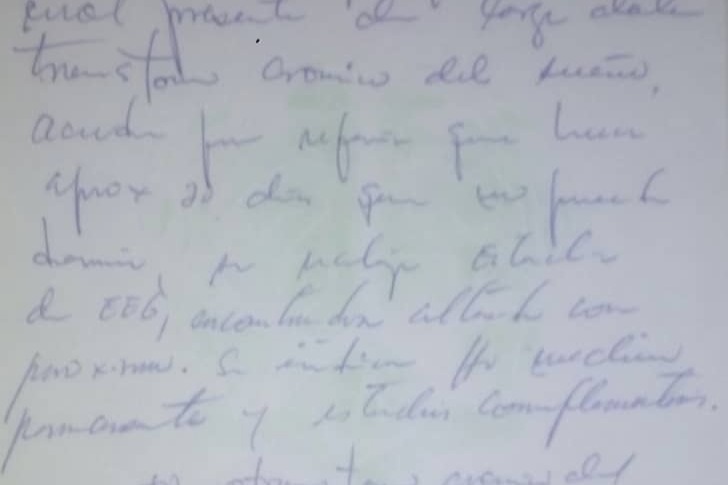 cual presenta de larga data
transtorno cronico del sueño,
acude por referir que hace
aprox 20 dias que no puede
dormir, se realiza estudio
de EEG, encontrandose alterado con
. Se indica tto medico
permanente y estudios complementarios.
cronico del